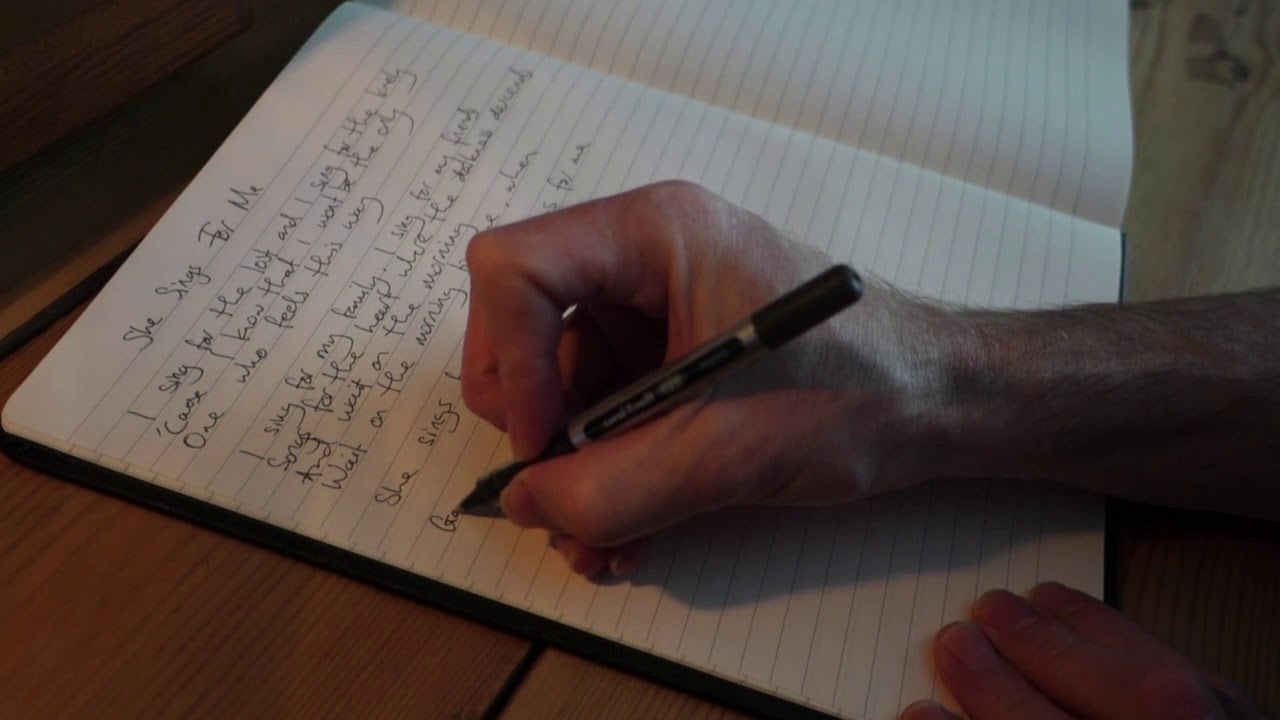 She Sings For Me
I sing for the lost and I sing for the lonely
'Cause I know that I won't be the only
One who feels this way
I sing for my family, I sing for my friends
Songs for the heart where the darkness descends
And I wait on the morning
Wait on the morning, when
She sings for me